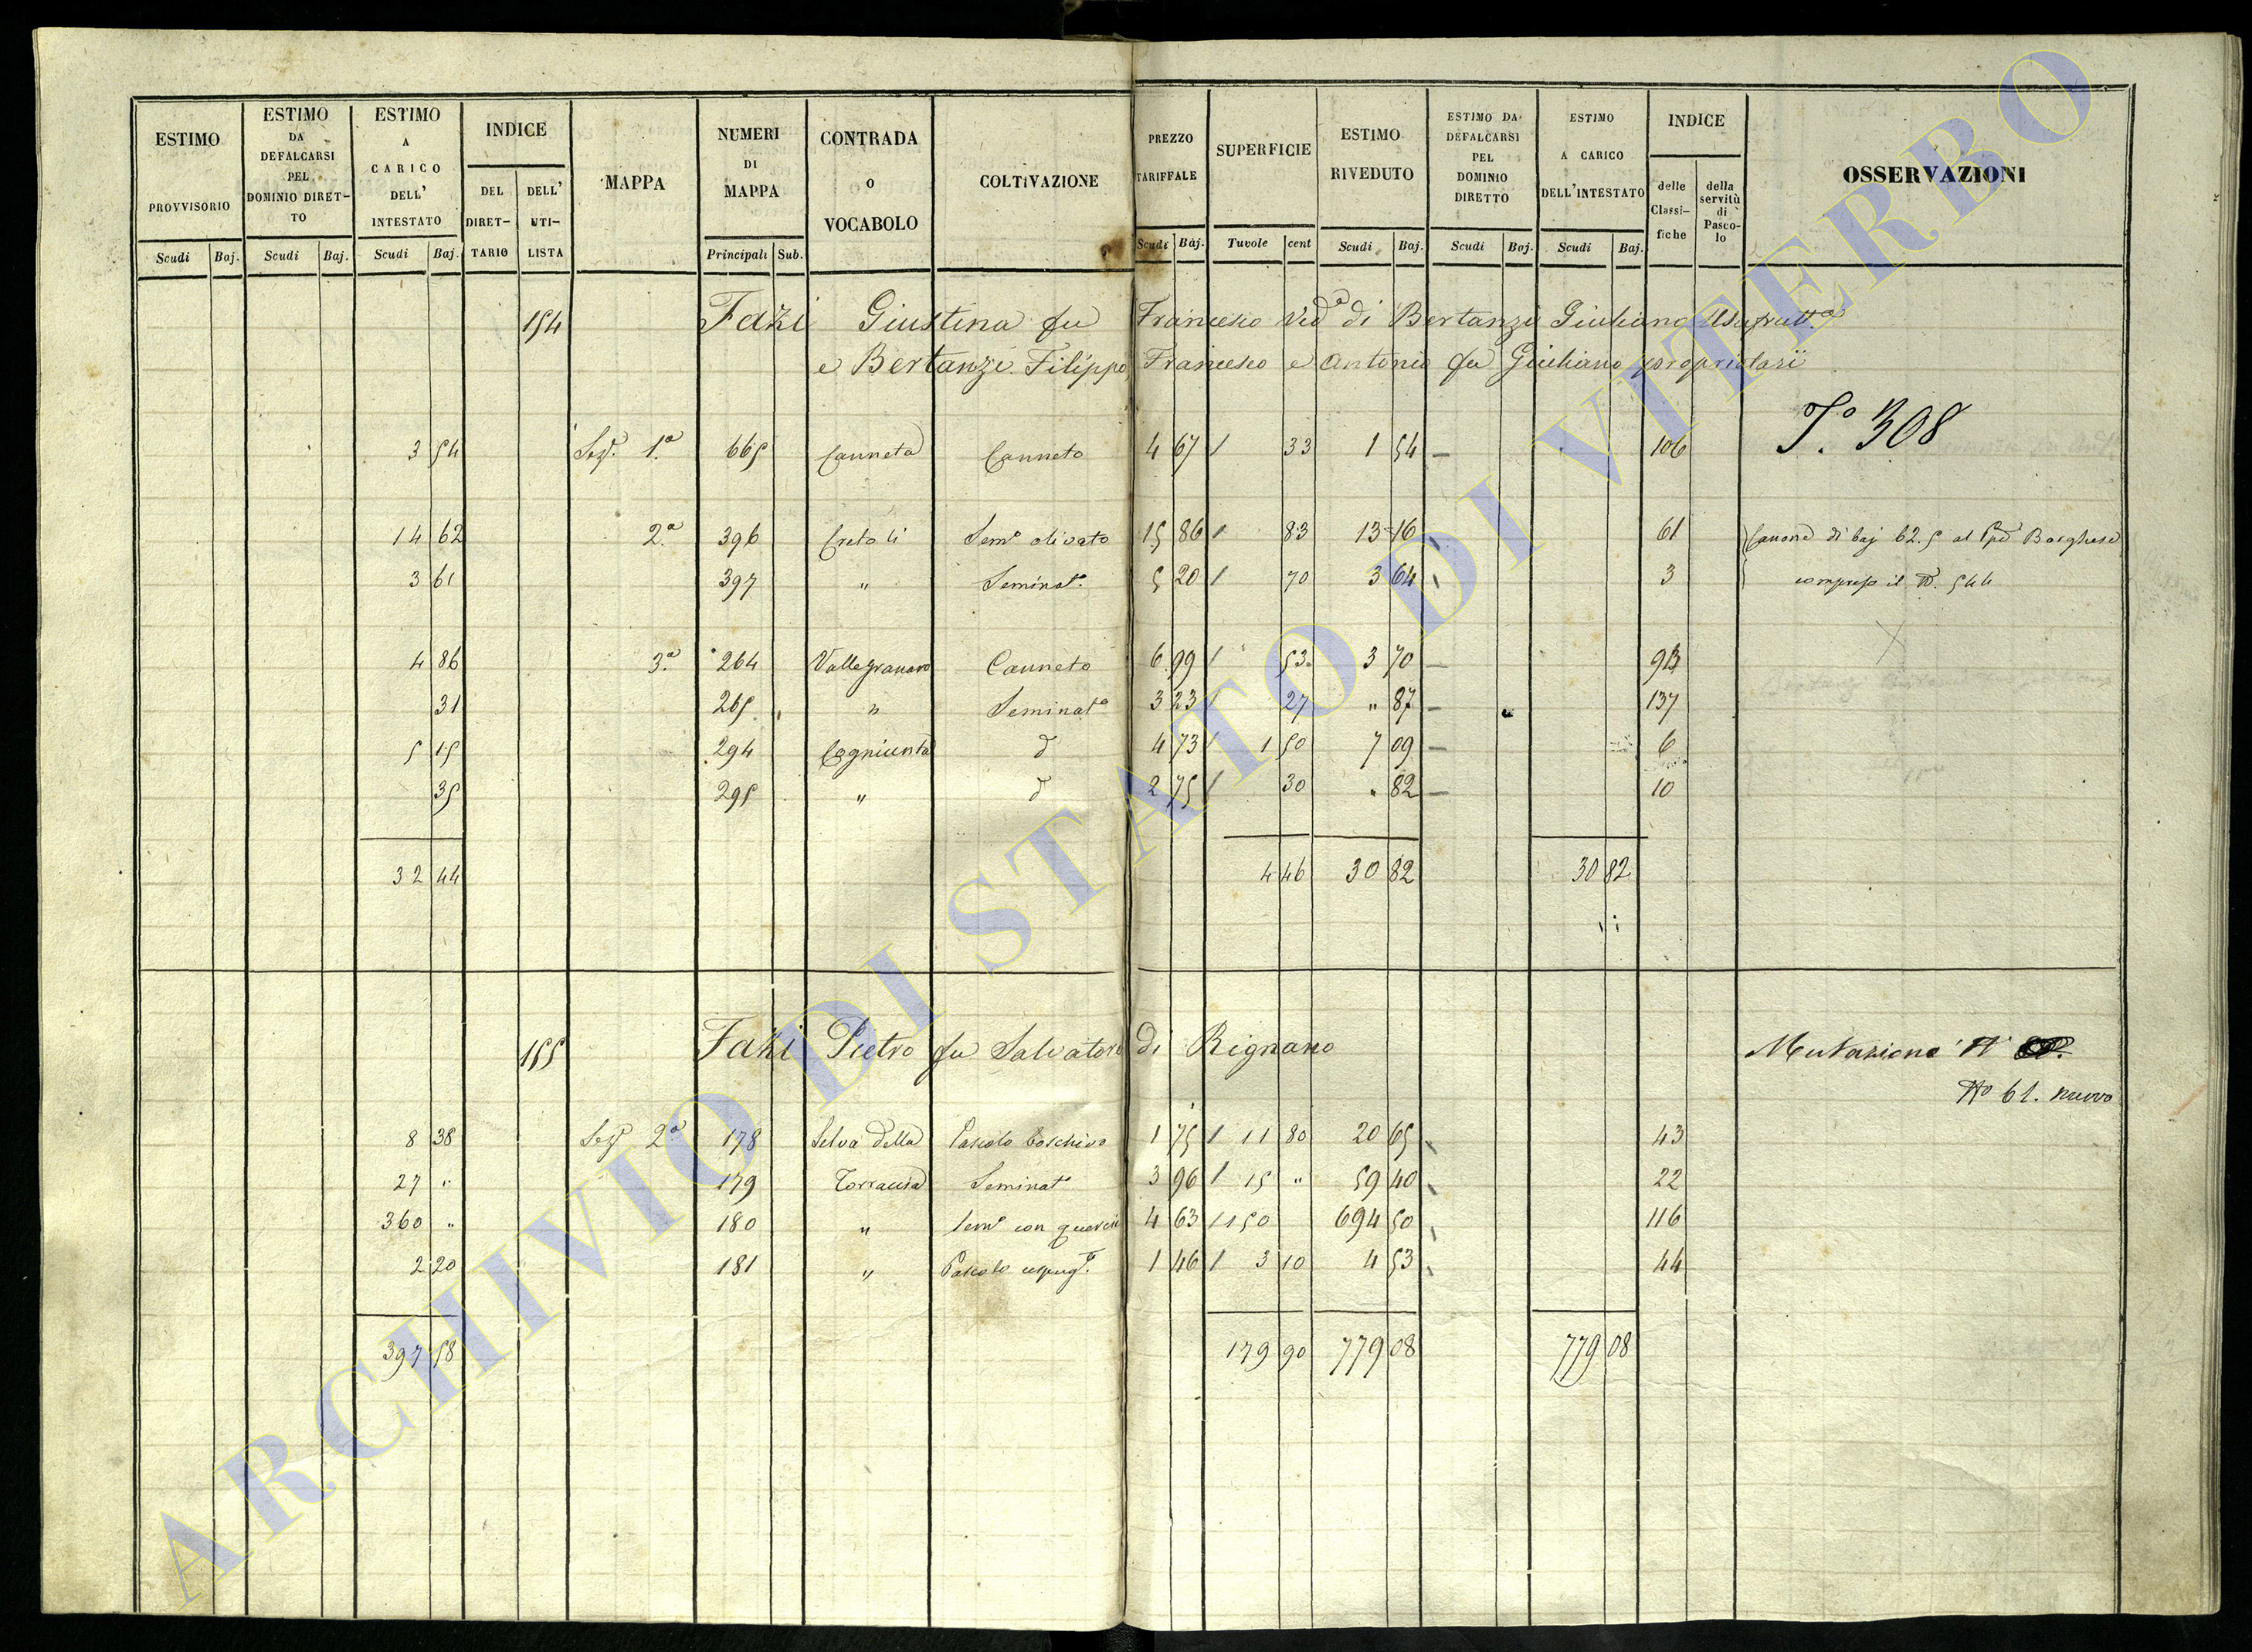 ESTIMO PROVVISORIO | ESTIMO DA DEFALCARSI PEL DOMINIO DIRETTO | ESTIMO A CARICO DELL' INTESTATO | INDICE DEL DIRETTARIO | DELL' UTILISTA | MAPPA | NUMERI DI MAPPA | CONTRADA O VOCABOLO | COLTIVAZIONE | PREZZO TARIFFALE | SUPERFICIE | ESTIMO RIVEDUTO | ESTIMO DA DEFALCARSI PEL DOMINIO DIRETTO | ESTIMO A CARICO DELL'INTESTATO | INDICE delle Classifiche | della servitù di Pascolo | OSSERVAZIONI
Scudi Baj. Scudi Baj. Scudi Baj. Principali Sub. Scudi Baj. Tavole cent Scudi Baj. Scudi Baj. Scudi Baj.
154 Fazi Giustina fu Francesco Ved.a di Bertanzi Giuliano Usufrutt.a
e Bertanzi Filippo, Francesco e Antonio fu Giuliano proprietarii
T.o 308
3 54 Sez. 1a 665 Canneta Canneto 4 67 / 33 1 54 — 106
14 62 2a 396 Creta li Sem.o olivato 15 86 / 83 13 16 61 Canone di baj 62.5 al Borghese
3 61 397 " Seminat.o 5 20 / 70 3 64 3 compreso il N. 544
4 86 3a 264 Valle granaro Canneto 6 99 / 53 3 70 —
31 265 " Seminat.o 3 23 / 27 " 87 — 137
5 15 294 d 4 73 / 1 50 7 09 — 6
35 295 " d 2 75 / 30 " 82 — 10
32 44 4 46 30 82 30 82
155 Fazi Pietro fu Salvatore di Rignano Mutazione N
No 61. nuovo
8 38 Sez. 2a 178 Selva della Pascolo boschivo 1 75 / 11 80 20 65 43
27 " 179 Torraccia Seminat.o 3 96 / 15 " 59 40 22
360 " 180 " Sem.o con querce 4 63 / 150 694 50 116
2 20 181 " Pascolo cespug.o 1 46 / 3 10 4 53 44
397 58 179 90 779 08 779 08
ARCHIVIO DI STATO DI VITERBO